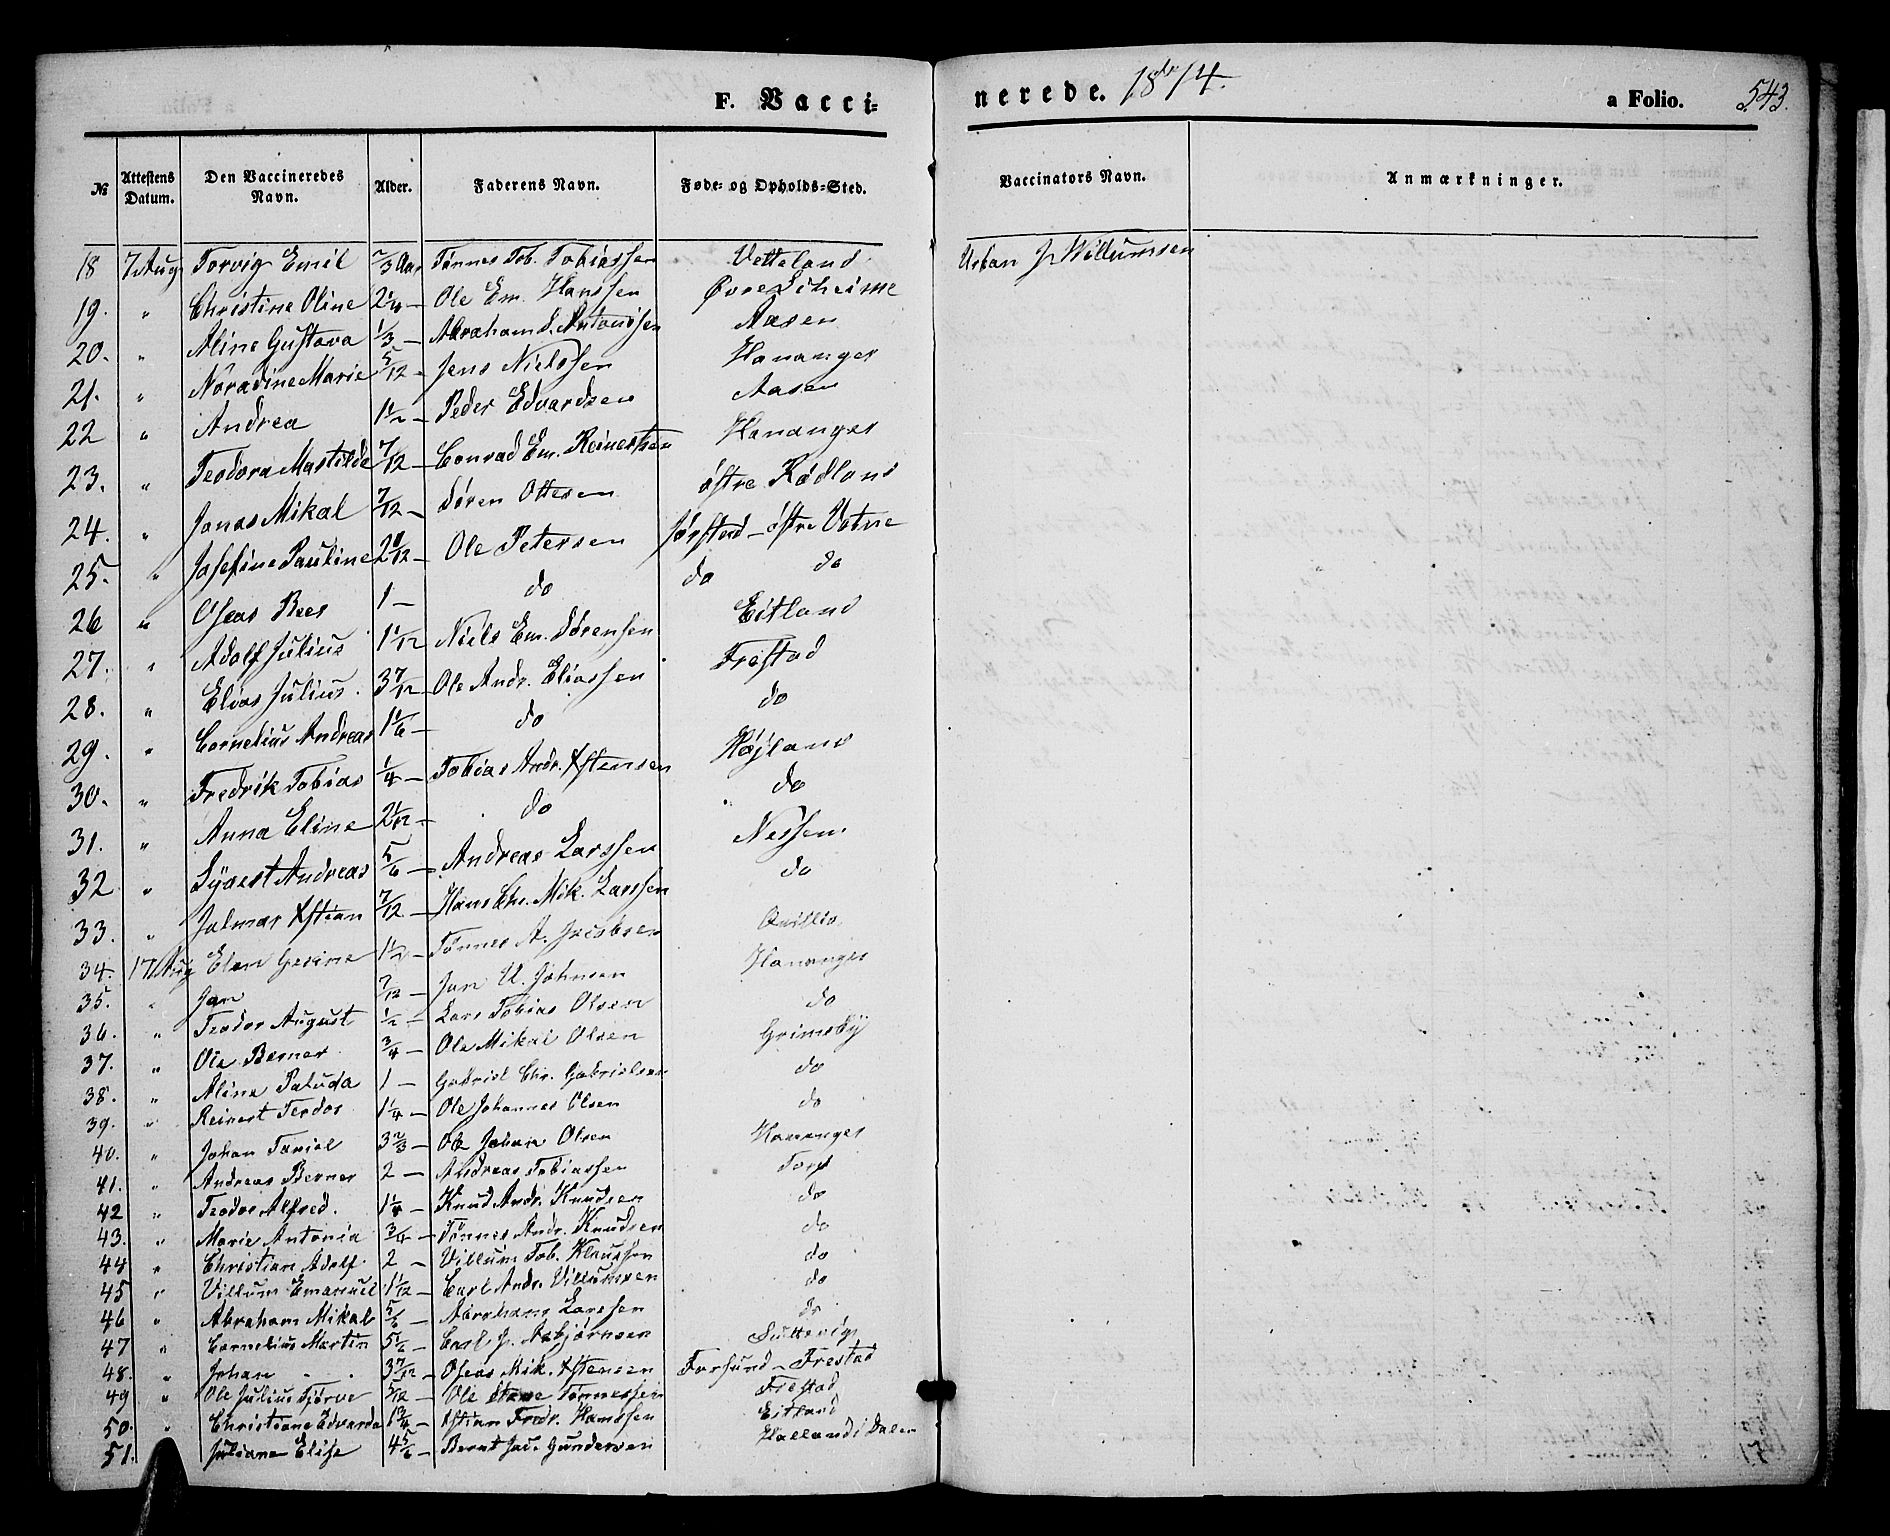 F. Vacci-
nerede. 1874.
a Folio. 543.
№ Attestens Datum. Den Vaccineredes Navn. Alder. Faderens Navn. Føde- og Opholds-Sted. Vaccinators Navn. Anmærkninger.
18 7 Aug Torvig Emil 2/3 Aar Tønnes Tob. Tobiassen Vetteland J. Willumsen
19. " Christine Oline 2 1/4 — Ole Em. Hanssen Øvre
20. " Aline Gustava 1/3 — Abraham S. Antonsen Aasen
21. " Noradine Marie 5/12 — Jens Nielssen Hananger
22 " Andrea 1 1/2 — Peder Edvardsen Aasen
23. " Teodora Mastilde 7/12 — Conrad Em. Reinertsen Hananger
24. " Jonas Mikal 7/12 — Søren Ottesen østre Rødland
25. " Josefine Pauline — Ole Petersen Jørstad – østre Vatne
26 " Oseas Beer 1 — do do do
27. " Adolf Julius 1 1/12 Niels Em. Sørensen Eitland
28. " Elias Julius. 3 7/12 — Ole Andr. Eliassen Frestad
29. " Cornelius Andreas 1 1/6 — do do
30. " Fredrik Tobias 1/4 — Tobias Andr. Xstensen Højland
31. " Anna Eline 2 1/12 — do do
32 " Syvert Andreas 5/6 — Andreas Larssen Nessen
33. " Jalmar Xstian 7/12 — Hans Chr. Mik. Larssen do
34. 17 Aug Elen Gesine 1 1/2 — Tønnes A. Jacobsen
35. " Jan 7/12 — Jan U. Johnsen Hananger
36. " Teodor August 1/2 — Lars Tobias Olsen do
37. " Ole Berner 3/4 — Ole Mikal Olsen Grimsby
38. " Aline Paluda 1 — Gabriel Chr. Gabrielsen do
39. " Reinert Teodor 1 1/4 — Ole Johannes Olsen do
40. " Johan Taniel 3 2/3 — Ole Johan Olsen Hananger
41. " Andreas Berner 2 — Andreas Tobiassen Torp
42 " Teodor Alfred. 1 1/4 — Knud Andr. Knudsen do
43. " Marie Antonia 3/4 — Tønnes Andr. Knudsen do
44 " Christian Adolf 2 — Villum Tob. Klaussen do
45 " Villum Emanuel 1 1/12 — Carl Andr. Villumsen do
46 " Abraham Mikal 5/6 — Abraham Larssen do
47 " Cornelius Martin 5 1/2 — Carl J. Asbjørnsen
48. " Johan 3 7/12 — Oseas Mik. Xstensen Farsund – Frestad
49 " Ole Julius Tjørve 5/12 — Ole Tønnessen Frestad
50. " Christiane Edvarda 1 3/4 — Xstian Fredr. Hanssen Eitland
51. " Juliane Elise 4 5/6 — Bernt Jac. Gundersen Halland i Dalen